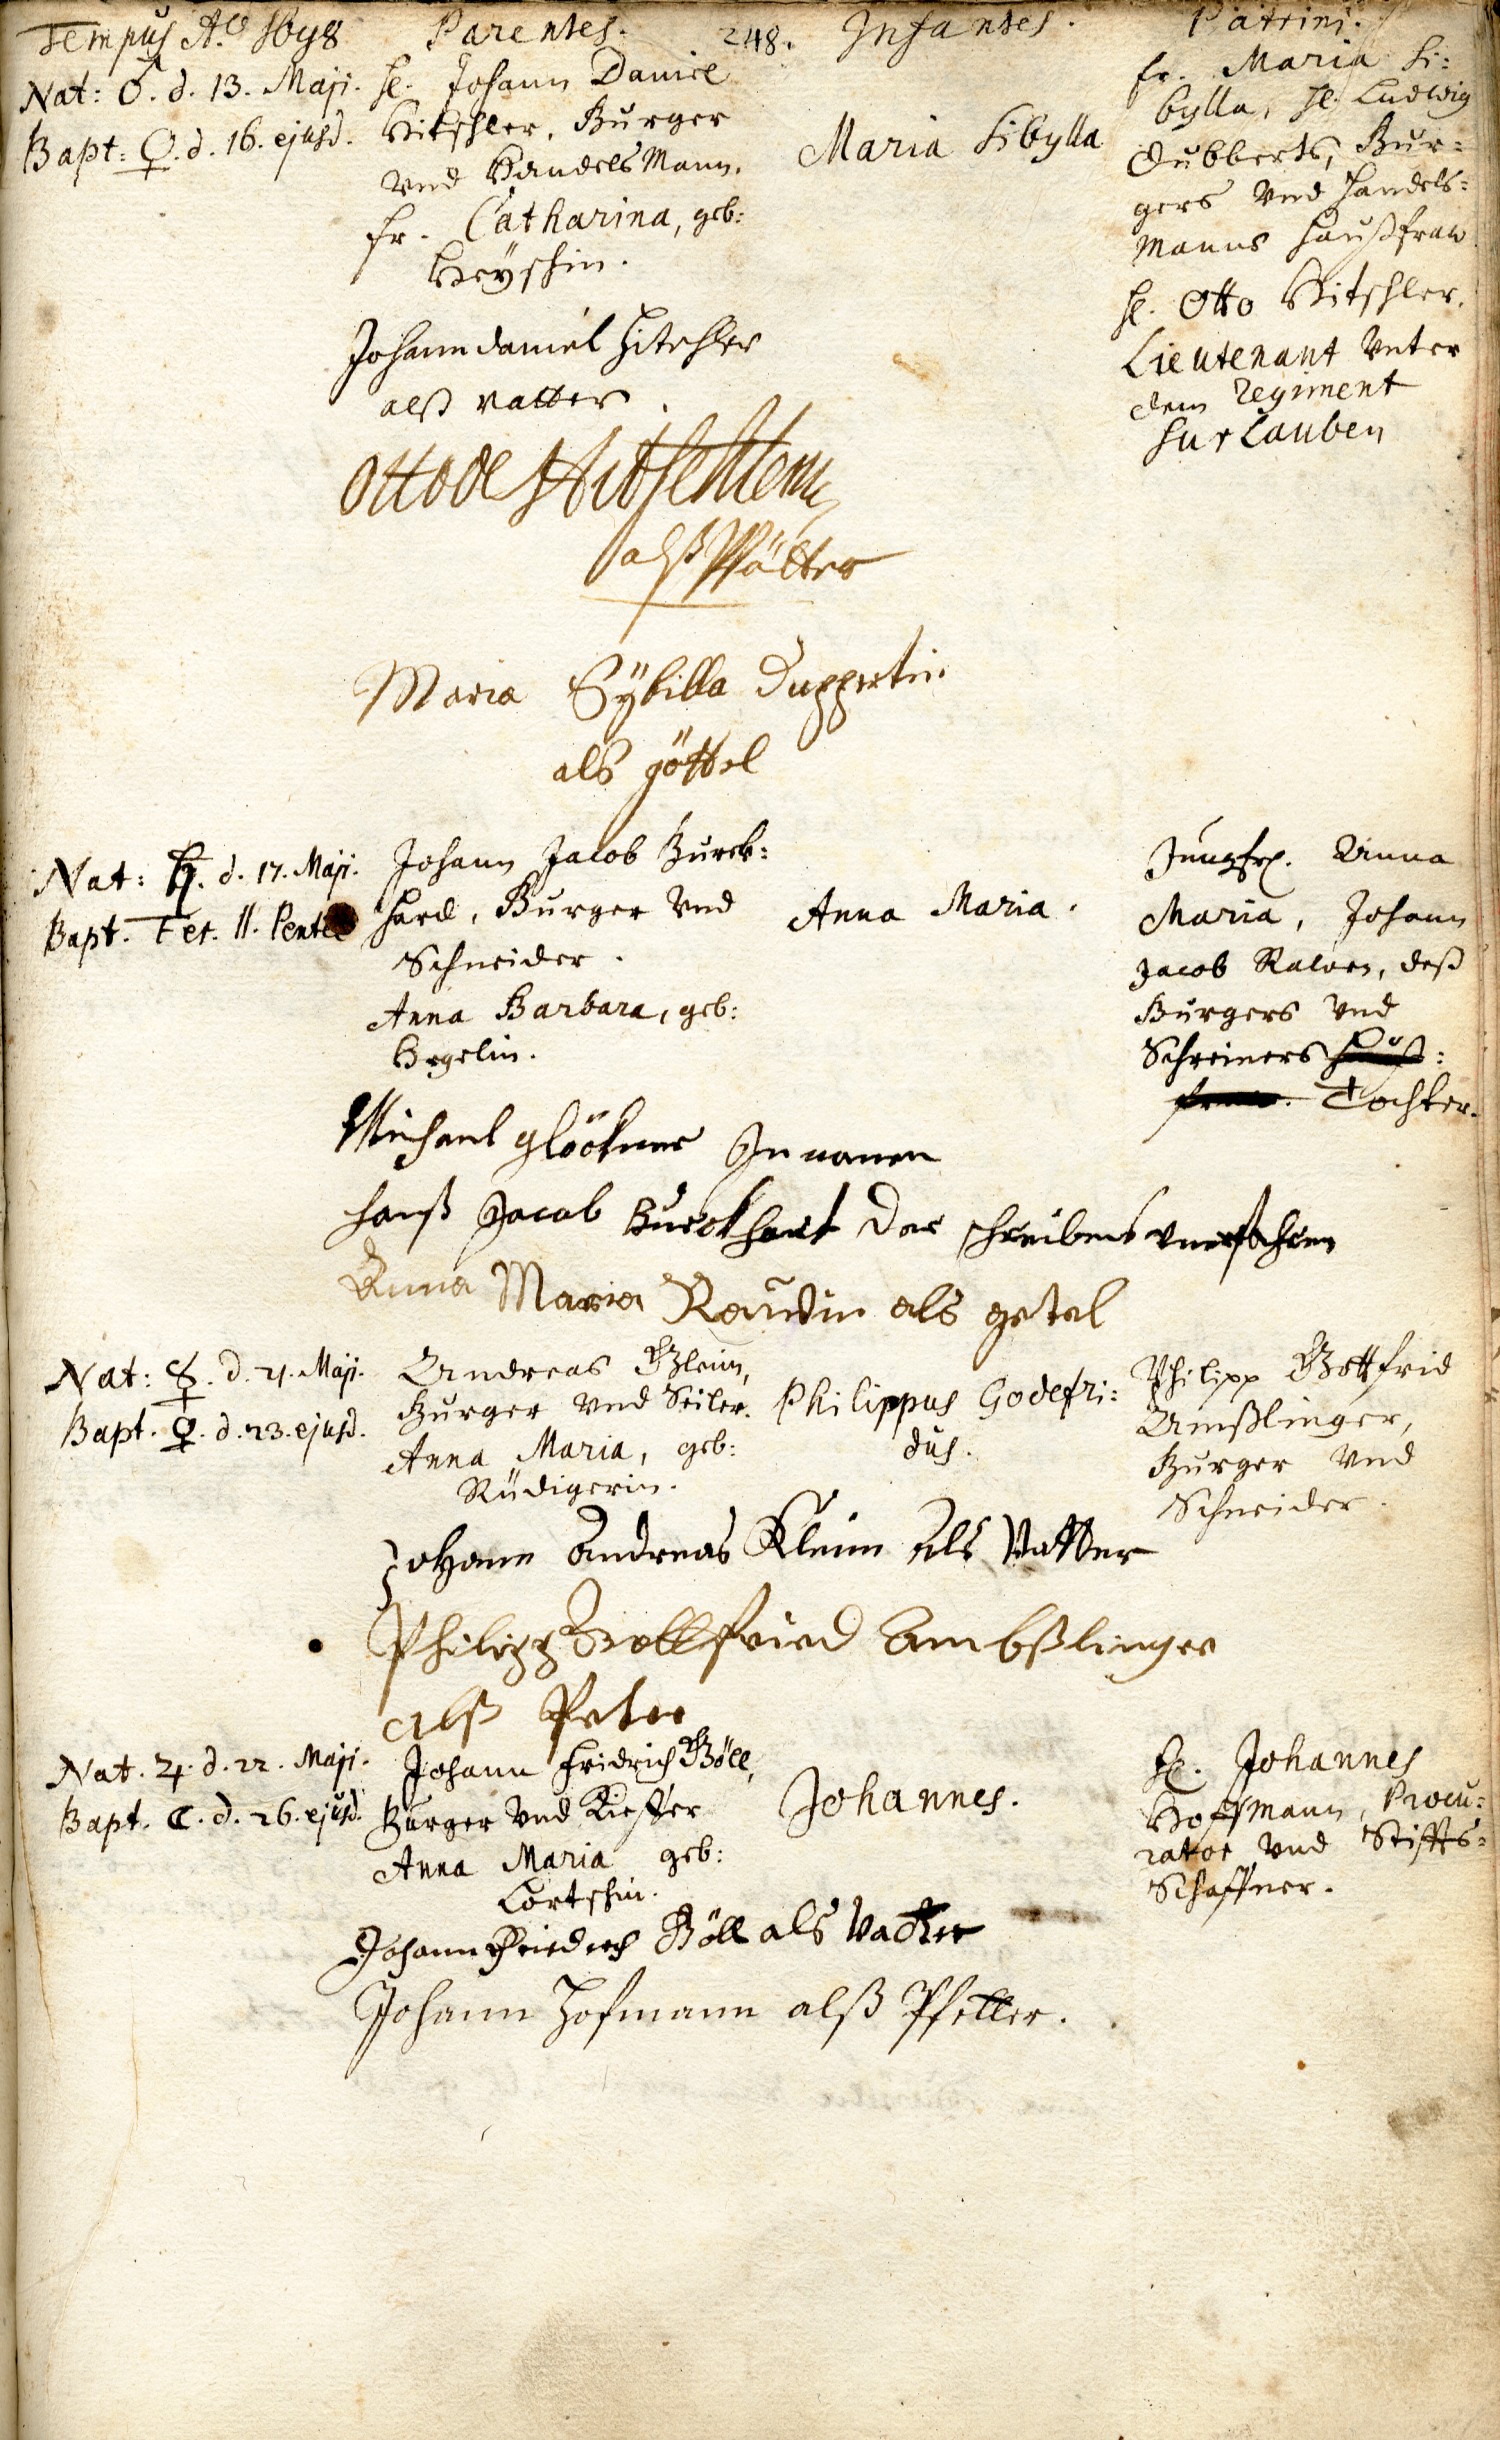 Tempus A.º 1698 Parentes. 248. Infantes. Patrini.
Nat: ♂. d. 13. Maji.
Bapt: ♀. d. 16. ejusd.
H. Johann Daniel
Hitschler, Burger
vnd HandelsMann.
Fr. Catharina, geb:
Maria Sibylla
Fr. Maria Si:
bylla, H. Ludwig
Dubberts, Bur:
gers vnd Handels:
Manns Haußfraw
H. Otto Hitschler,
Lieutenant vnter
dem Regiment
Surlauben
Johann daniel Hitschler
alß vatter
Otto de
alß Pfätter
Maria Sÿbilla Duppertin
als göttel
Nat: ♄. d. 17. Maji.
Bapt. Fer. II. Pentec
Johann Jacob Burck:
hard, Burger vnd
Schneider.
Anna Barbara, geb:
Anna Maria.
Jungfr. Anna
Maria, Johann
Jacob , deß
Burgers vnd
Schreiners Hauß:
fraw. Tochter.
Michael glöckner In namen
hanß Jacob Burckhart der schreibens vnerfahren
Anna Maria als getel
Nat: ☿. d. 21. Maji.
Bapt. ♀. d. 23. ejusd.
Andreas Klein,
Burger vnd Seiler.
Anna Maria, geb:
Rüdigerin.
Philippus Godefri:
dus.
Philipp Gottfrid
Amßlinger,
Burger vnd
Schneider.
Johann Andreas Klein als Vatter
Philipp Gottfried Ambßlinger
alß Peter
Nat. ♃. d. 22. Maji.
Bapt. ☾. d. 26. ejusd.
Johann Fridrich Böll,
Burger vnd Kieffer
Anna Maria geb:
Lortschin.
Johannes.
H. Johannes
Hoffmann, Procu:
rator vnd Stiffts:
Schaffner.
Johann Friedrich Böll als Vatter
Johann Hofmann alß Pfetter.